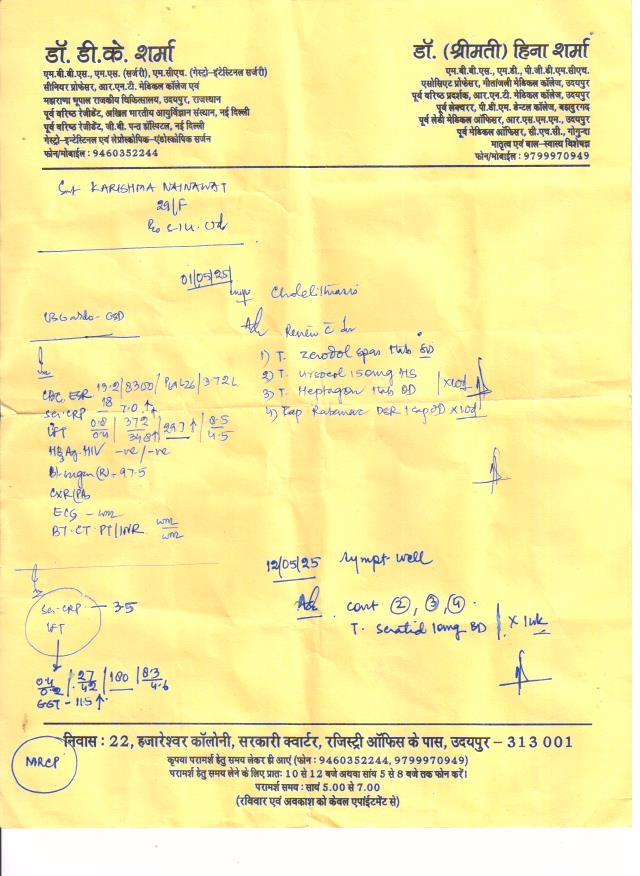 डॉ. डी.के. शर्मा
एम.बी.बी.एस., एम.एस. (सर्जरी), एम.सीएच. (गेस्ट्रो-इंटेस्टिनल सर्जरी)
सीनियर प्रोफेसर, आर.एन.टी. मेडिकल कॉलेज एवं
महाराणा भूपाल राजकीय चिकित्सालय, उदयपुर, राजस्थान
पूर्व वरिष्ठ रेजीडेंट, अखिल भारतीय आयुर्विज्ञान संस्थान, नई दिल्ली
पूर्व वरिष्ठ रेजीडेंट, जी.बी. पन्त हॉस्पिटल, नई दिल्ली
गेस्ट्रो-इन्टेस्टिनल एवं लेप्रोस्कोपिक-एंडोस्कोपिक सर्जन
फोन/मोबाईल : 9460352244
डॉ. (श्रीमती) हिना शर्मा
एम.बी.बी.एस., एम.डी., पी.जी.डी.एम.सीएच.
एसोसिएट प्रोफेसर, गीतांजली मेडिकल कॉलेज, उदयपुर
पूर्व वरिष्ठ प्रदर्शक, आर.एन.टी. मेडिकल कॉलेज, उदयपुर
पूर्व लेक्चरर, पी.डी.एम. डेन्टल कॉलेज, बहादुरगढ़
पूर्व लेडी मेडिकल ऑफिसर, आर.एस.एम.एम., उदयपुर
पूर्व मेडिकल ऑफिसर, सी.एच.सी., गोगुन्दा
मातृत्व एवं बाल-स्वास्थ्य विशेषज्ञ
फोन/मोबाईल : 9799970949
Smt KARISHMA NAINAWAT
29/F
01/05/25
Cholelithiasis
Adv Review
1) T. Zerodol spas 1tab BD
2) T. Urocol 150mg HS
3) T. Heptagon 1tab BD | x10d
4) Cap DSR 1 cap OD x10d
CBC, ESR 13.2/8300/ /3.72L
18
Ser-CRP 7.0↑
LFT 0.8/0.4 | 372/348↑ | 297↑ | 8.5/4.5
HBsAg-HIV -ve/-ve
Bl. sugar (R) = 97.5
CXR(PA)
ECG - wnl
BT.CT.PT/INR wnl/wnl
12/05/25 sympt well
Adv cont ②, ③, ④.
T. 10mg BD | x 1wk
Ser-CRP — 3.5
LFT
0.4/0.2 | 27/42 | 180 | 8.3/4.6
GGT - 115↑
MRCP
निवास : 22, हजारेश्वर कॉलोनी, सरकारी क्वार्टर, रजिस्ट्री ऑफिस के पास, उदयपुर – 313 001
कृपया परामर्श हेतु समय लेकर ही आएं (फोन : 9460352244, 9799970949)
परामर्श हेतु समय लेने के लिए प्रातः 10 से 12 बजे अथवा सायं 5 से 8 बजे तक फोन करें।
परामर्श समय : सायं 5.00 से 7.00
(रविवार एवं अवकाश को केवल एपॉइंटमेंट से)